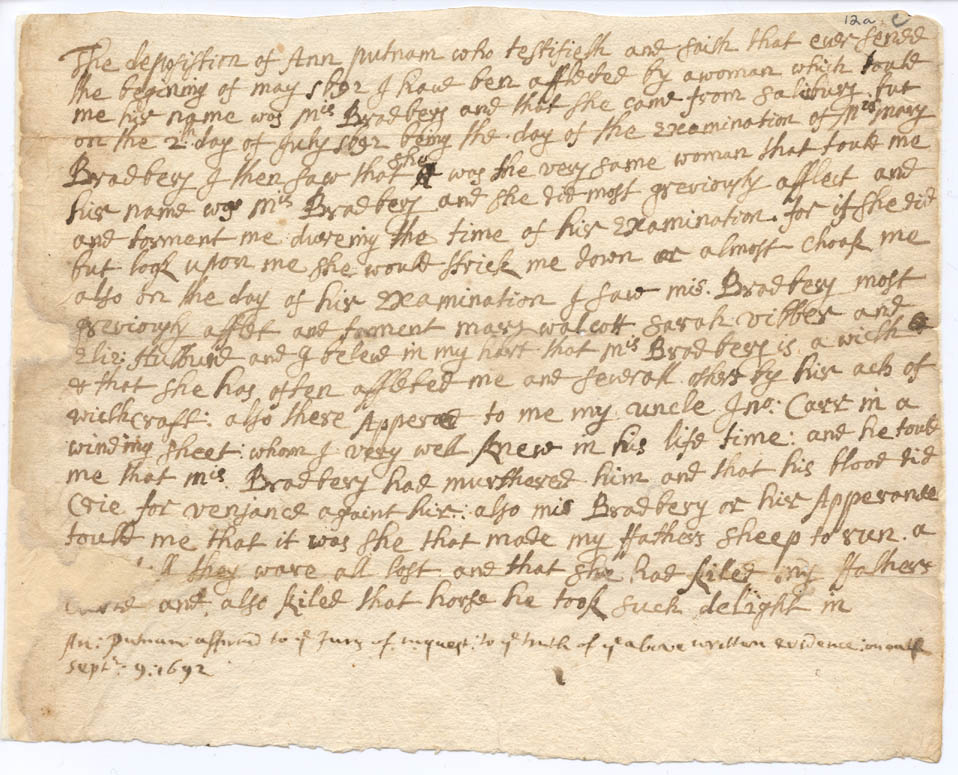 12a. C
The deposistion of Ann putnam who testifieth and saith that ever sence
the begining of may 1692 I have ben afflected by a woman which tould
me hir name was mis Bradbery and that she came from Salisbury but
on the 2th day of July 1692 being the day of the Examination of mis mary
Bradbery I then saw that she was the very same woman that tould me
hir name was mis Bradbery and she did most greviously afflect and
and torment me dureing the time of hir Examination. for if she did
but look upon me she would strick me down or almost choak me
also on the day of hir Examination I saw mis. Bradbery most
greviously afflet and torment mary walcott Sarah vibber and
Eliz: Hubburd and I beleve in my hart that mis Bradbery is a wicth
& that she has often affleted me and severall others by his acts of
wicthcraft: also there Appered to me my uncle Jno: Carr in a
winding sheet: whom I very well knew in his life time: and he tould
me that mis. Bradbery had murthered him and that his blood did
Crie for venjance against hir: also mis Bradbery or hir Apperance
tould me that it was she that made my ffathers sheep to run. a
tell they ware all lost and that she had kiled my ffathers
and also kiled that horse he took such delight in
An: Putnam: affirmd to ye Jury of inquest: to ye truth of ye above written evidence: on oath
Septr: 9: 1692